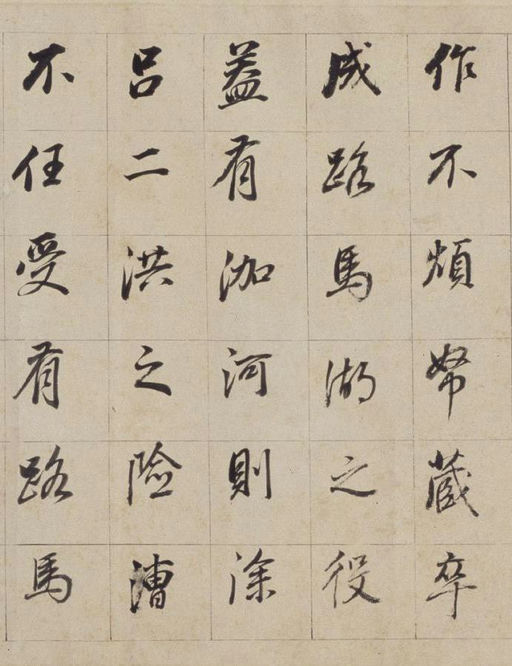 作不煩帑藏卒
成路馬湖之役
蓋有泇河則涂
呂二洪之險漕
不任受有路馬